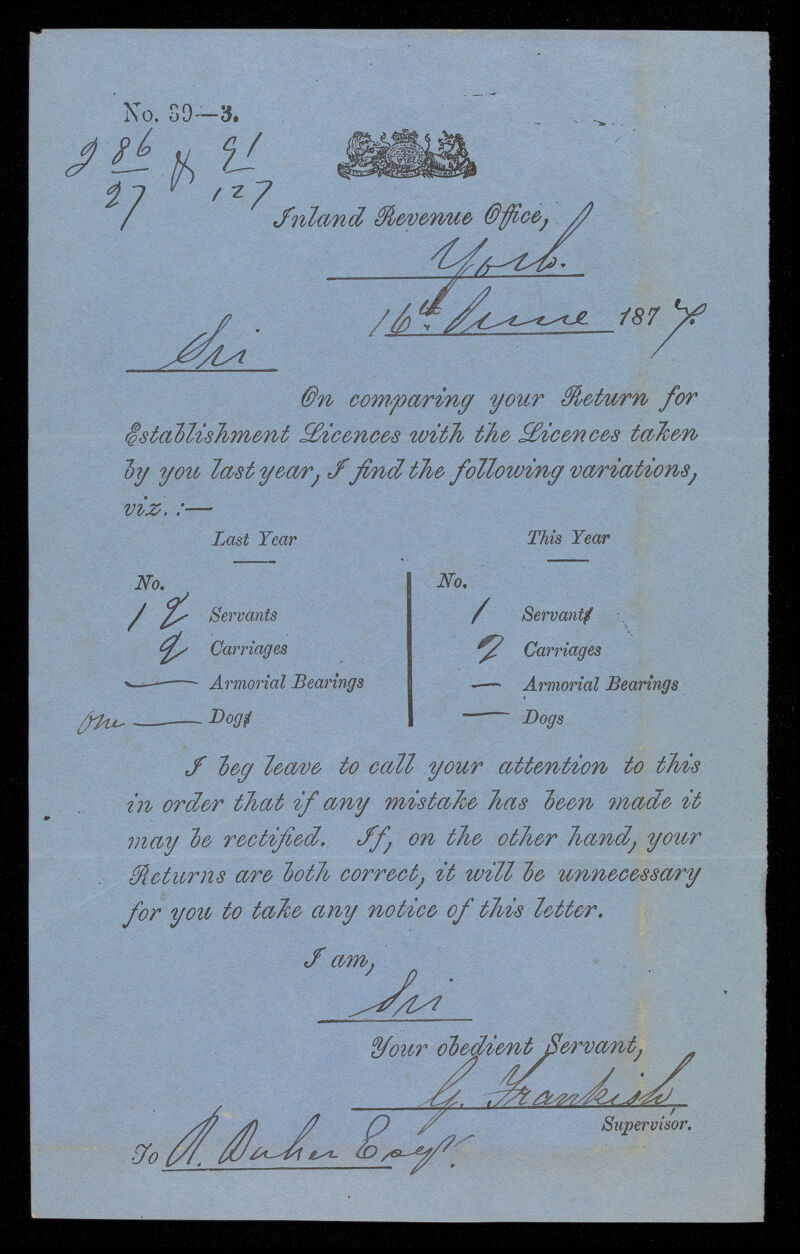 No. 39—3.
2 86/27 & 91/127
Inland Revenue Office,
York.
16th June 1877.
Sir
On comparing your Return for
Establishment Licences with the Licences taken
by you last year, I find the following variations,
viz. :—
Last Year This Year
No. No.
1 2 Servants 1 Servant
2 Carriages 2 Carriages
— Armorial Bearings — Armorial Bearings
One — Dog — Dogs
I beg leave to call your attention to this
in order that if any mistake has been made it
may be rectified. If, on the other hand, your
Returns are both correct, it will be unnecessary
for you to take any notice of this letter.
I am,
Sir
Your obedient Servant,
G. Frankish,
Supervisor.
To R. Esqr.